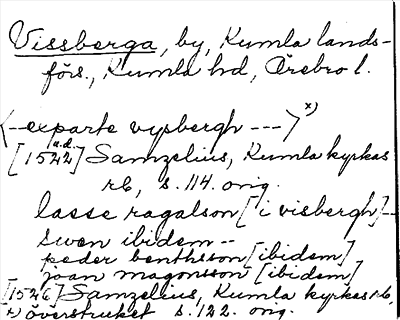 Vissberga, by, Kumla lands-
förs., Kumla hd, Örebro l.
<-- exparte vysbergh --->x)
[1522 a.d.] Samzelius, Kumla kyrkas
rb, s. 114. orig.
lasse ragalson [i visbergh] --
Swen ibidem --
peder benthsson [ibidem]
joan magonsson [ibidem]
[1526] Samzelius, Kumla kyrkas rb,
x) överstruket s. 122. orig.